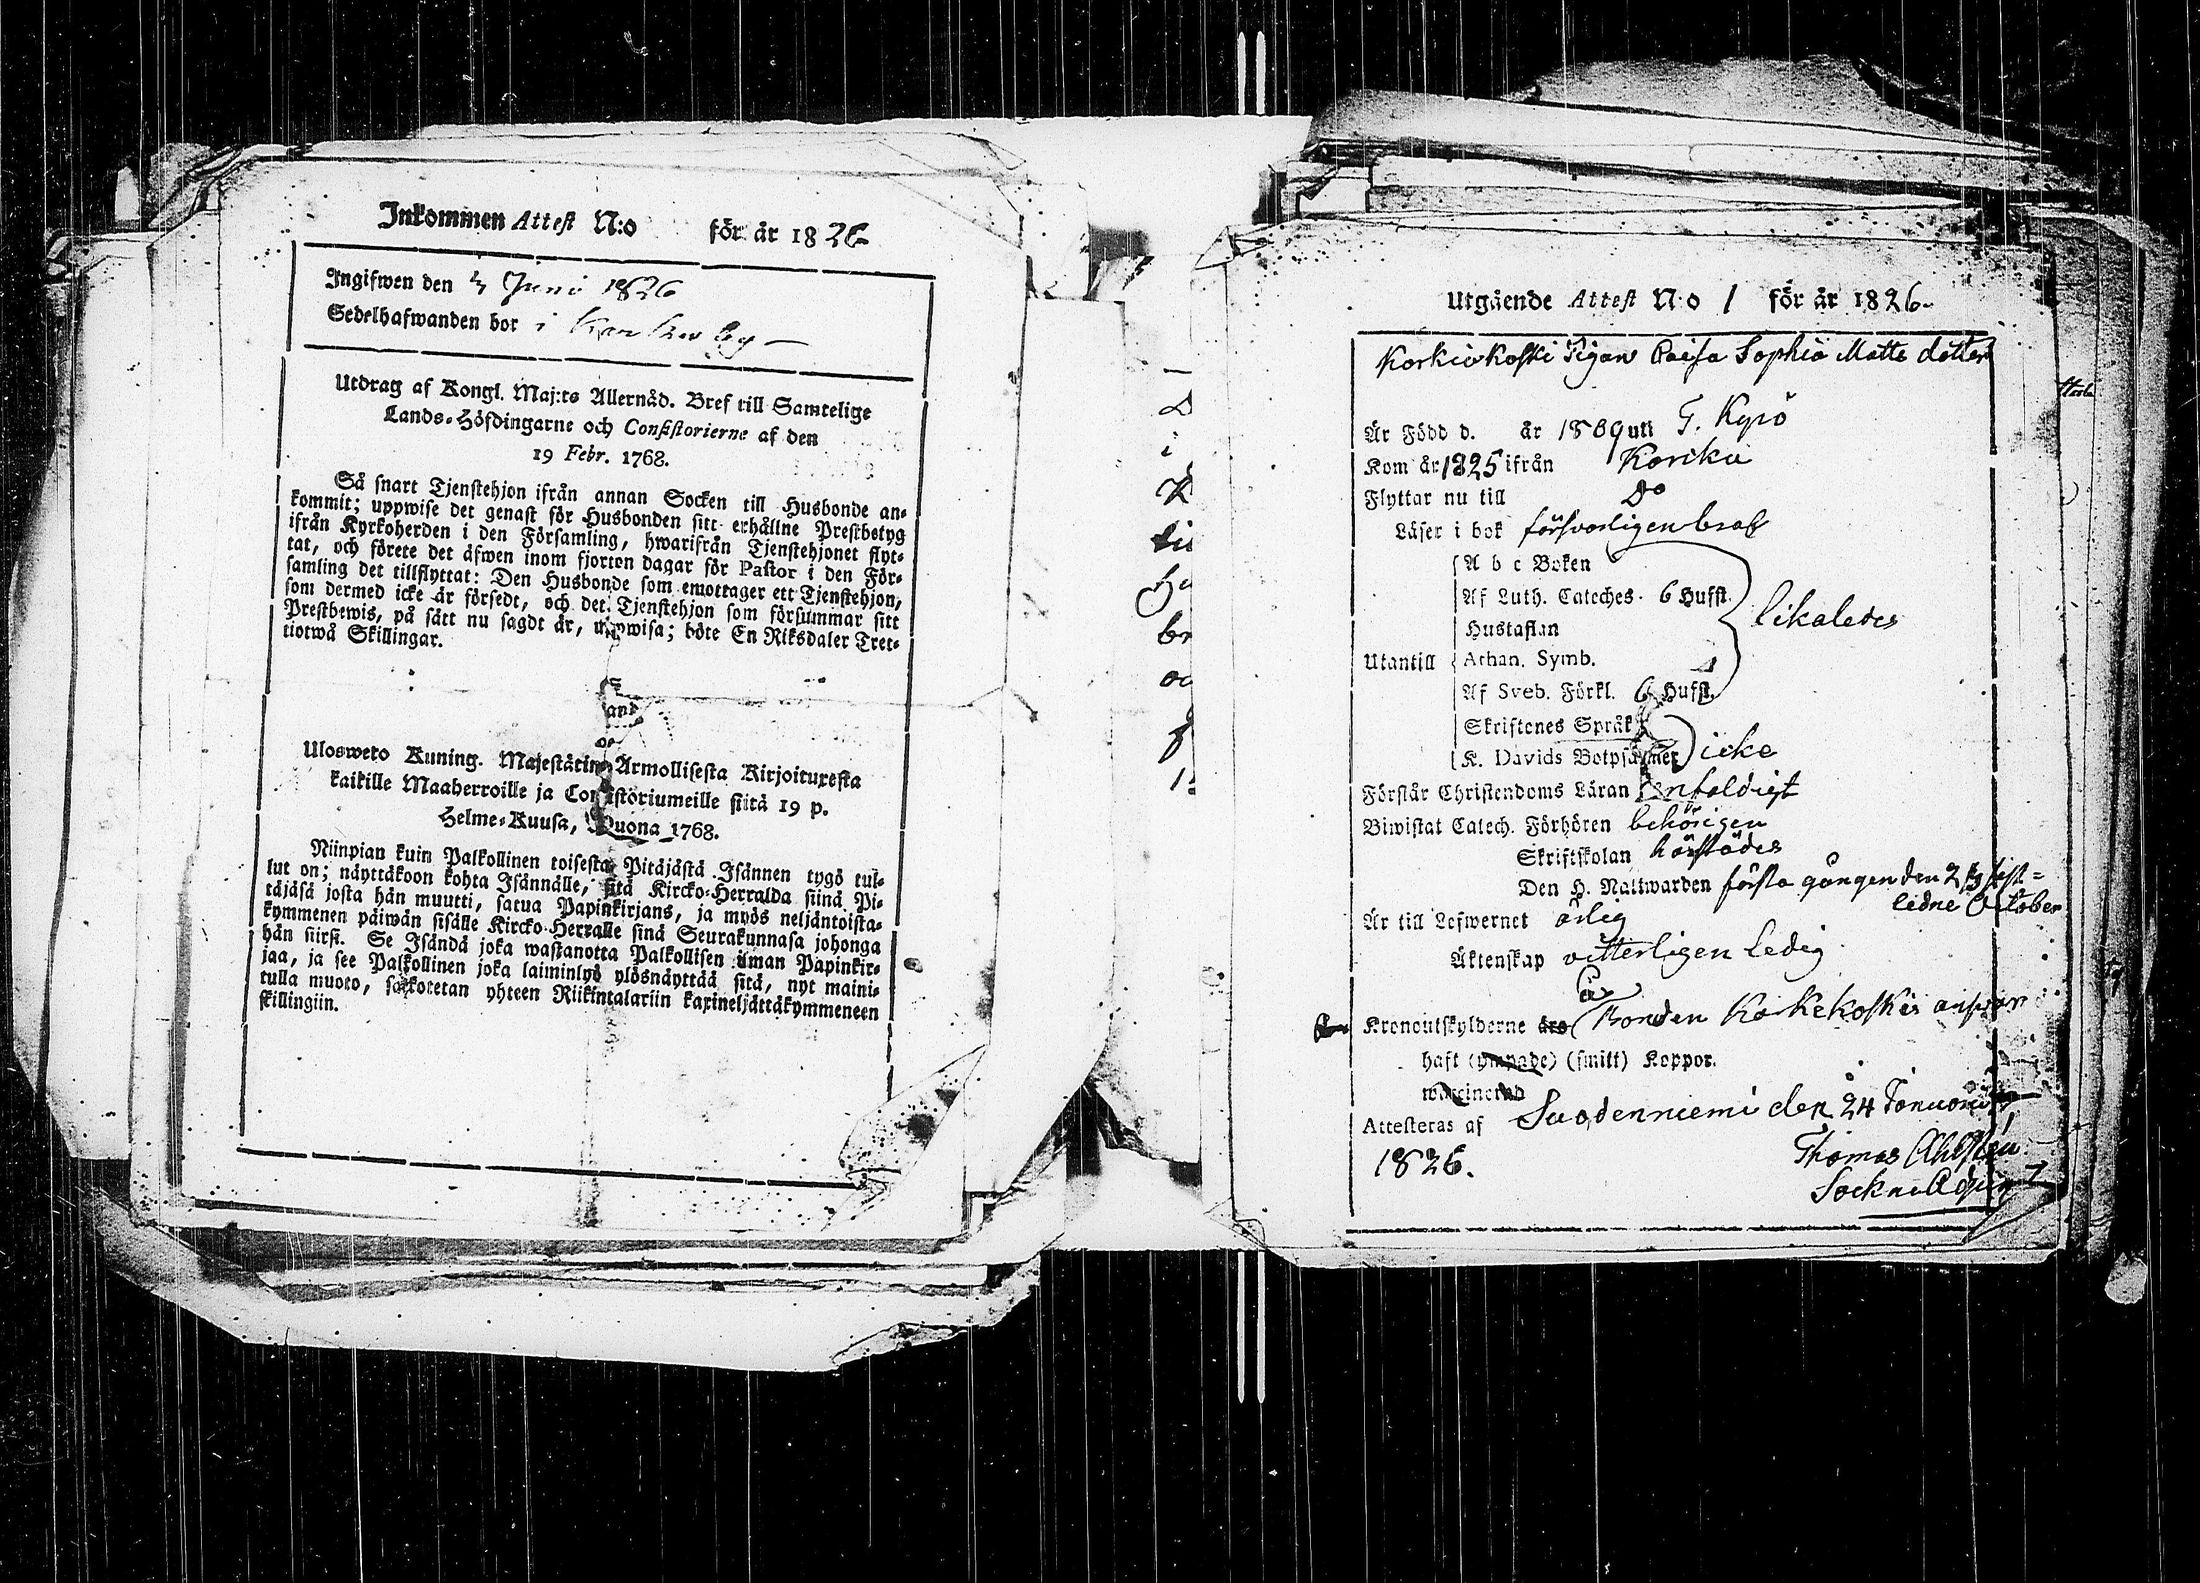 Inkommen Attest N:o för år 1826
Ingifwen den 4 Juni 1826
Sedelhafwanden bor i Karkku by
Utdrag af Kongl. Maj:ts Allernåd. Bref till Samtelige
Lands-Höfdingarne och Consistorierne af den
19 Febr. 1768.
Så snart Tjenstehjon ifrån annan Socken till Husbonde an-
kommit; uppwise det genast för Husbonden sitt erhållne Prestbetyg
ifrån Kyrkoherden i den Församling, hwarifrån Tjenstehjonet flyt-
tat, och förete det äfwen inom fjorton dagar för Pastor i den För-
samling det tillflyttat: Den Husbonde som emottager ett Tjenstehjon,
som dermed icke är försedt, och det Tjenstehjon som försummar sitt
Prestbewis, på sätt nu sagdt är, uppwisa; böte En Riksdaler Tret-
tiotwå Skillingar.
Ulosweto Kuning. Majestätin Armollisesta Kirjoituxesta
kaikille Maaherroille ja Consistoriumeille siitä 19 p.
Helme-Kuusa, Wuona 1768.
Niinpian kuin Palkollinen toisesta Pitäjästä Isännen tygö tul-
lut on; näyttäkoon kohta Isännälle, sitä Kircko-Herralda siinä Pi-
täjäsä josta hän muutti, satua Papinkirjans, ja myös neljäntoista-
kymmenen päiwän sisälle Kircko-Herralle sinä Seurakunnasa johonga
hän siirsi. Se Isändä joka wastanotta Palkollisen ilman Papinkir-
jaa, ja see Palkollinen joka laiminlyö ylösnäyttää sitä, nyt maini-
tulla muoto, sackotetan yhteen Riikintalariin kaxineljättäkymmeneen
skillingiin.
Utgående Attest N:o 1 för år 1826
Korkiakoski Pigan Caisa Sophia Matts dotter
Är Född d. år 1809 uti T. Kyrö
Kom år 1825 ifrån Karcku
Flyttar nu till Do
Läser i bok försvarligen braf
A b c Boken
Af Luth. Cateches. 6 Hufst.
Hustaflan likaledes
Utantill Athan. Symb.
Af Sveb. Förkl. 6 Hufst.
Skriftenes Språk
K. Davids Botpsalmer icke
Förstår Christendoms Läran enfaldigt
Biwistat Catech. Förhören behörigen
Skriftskolan härstädes
Den H. Nattwarden första gången den 23 sist-
ledne October
Är till Lefwernet ärlig
Äktenskap vitterligen Ledig
Kronoutskylderne å Bonden Korkekoskis answar
haft (ympade) (smitt) Koppor.
waccinerad
Attesteras af Suodenniemi den 24 Januarii
1826.
Thomas Ahlstén